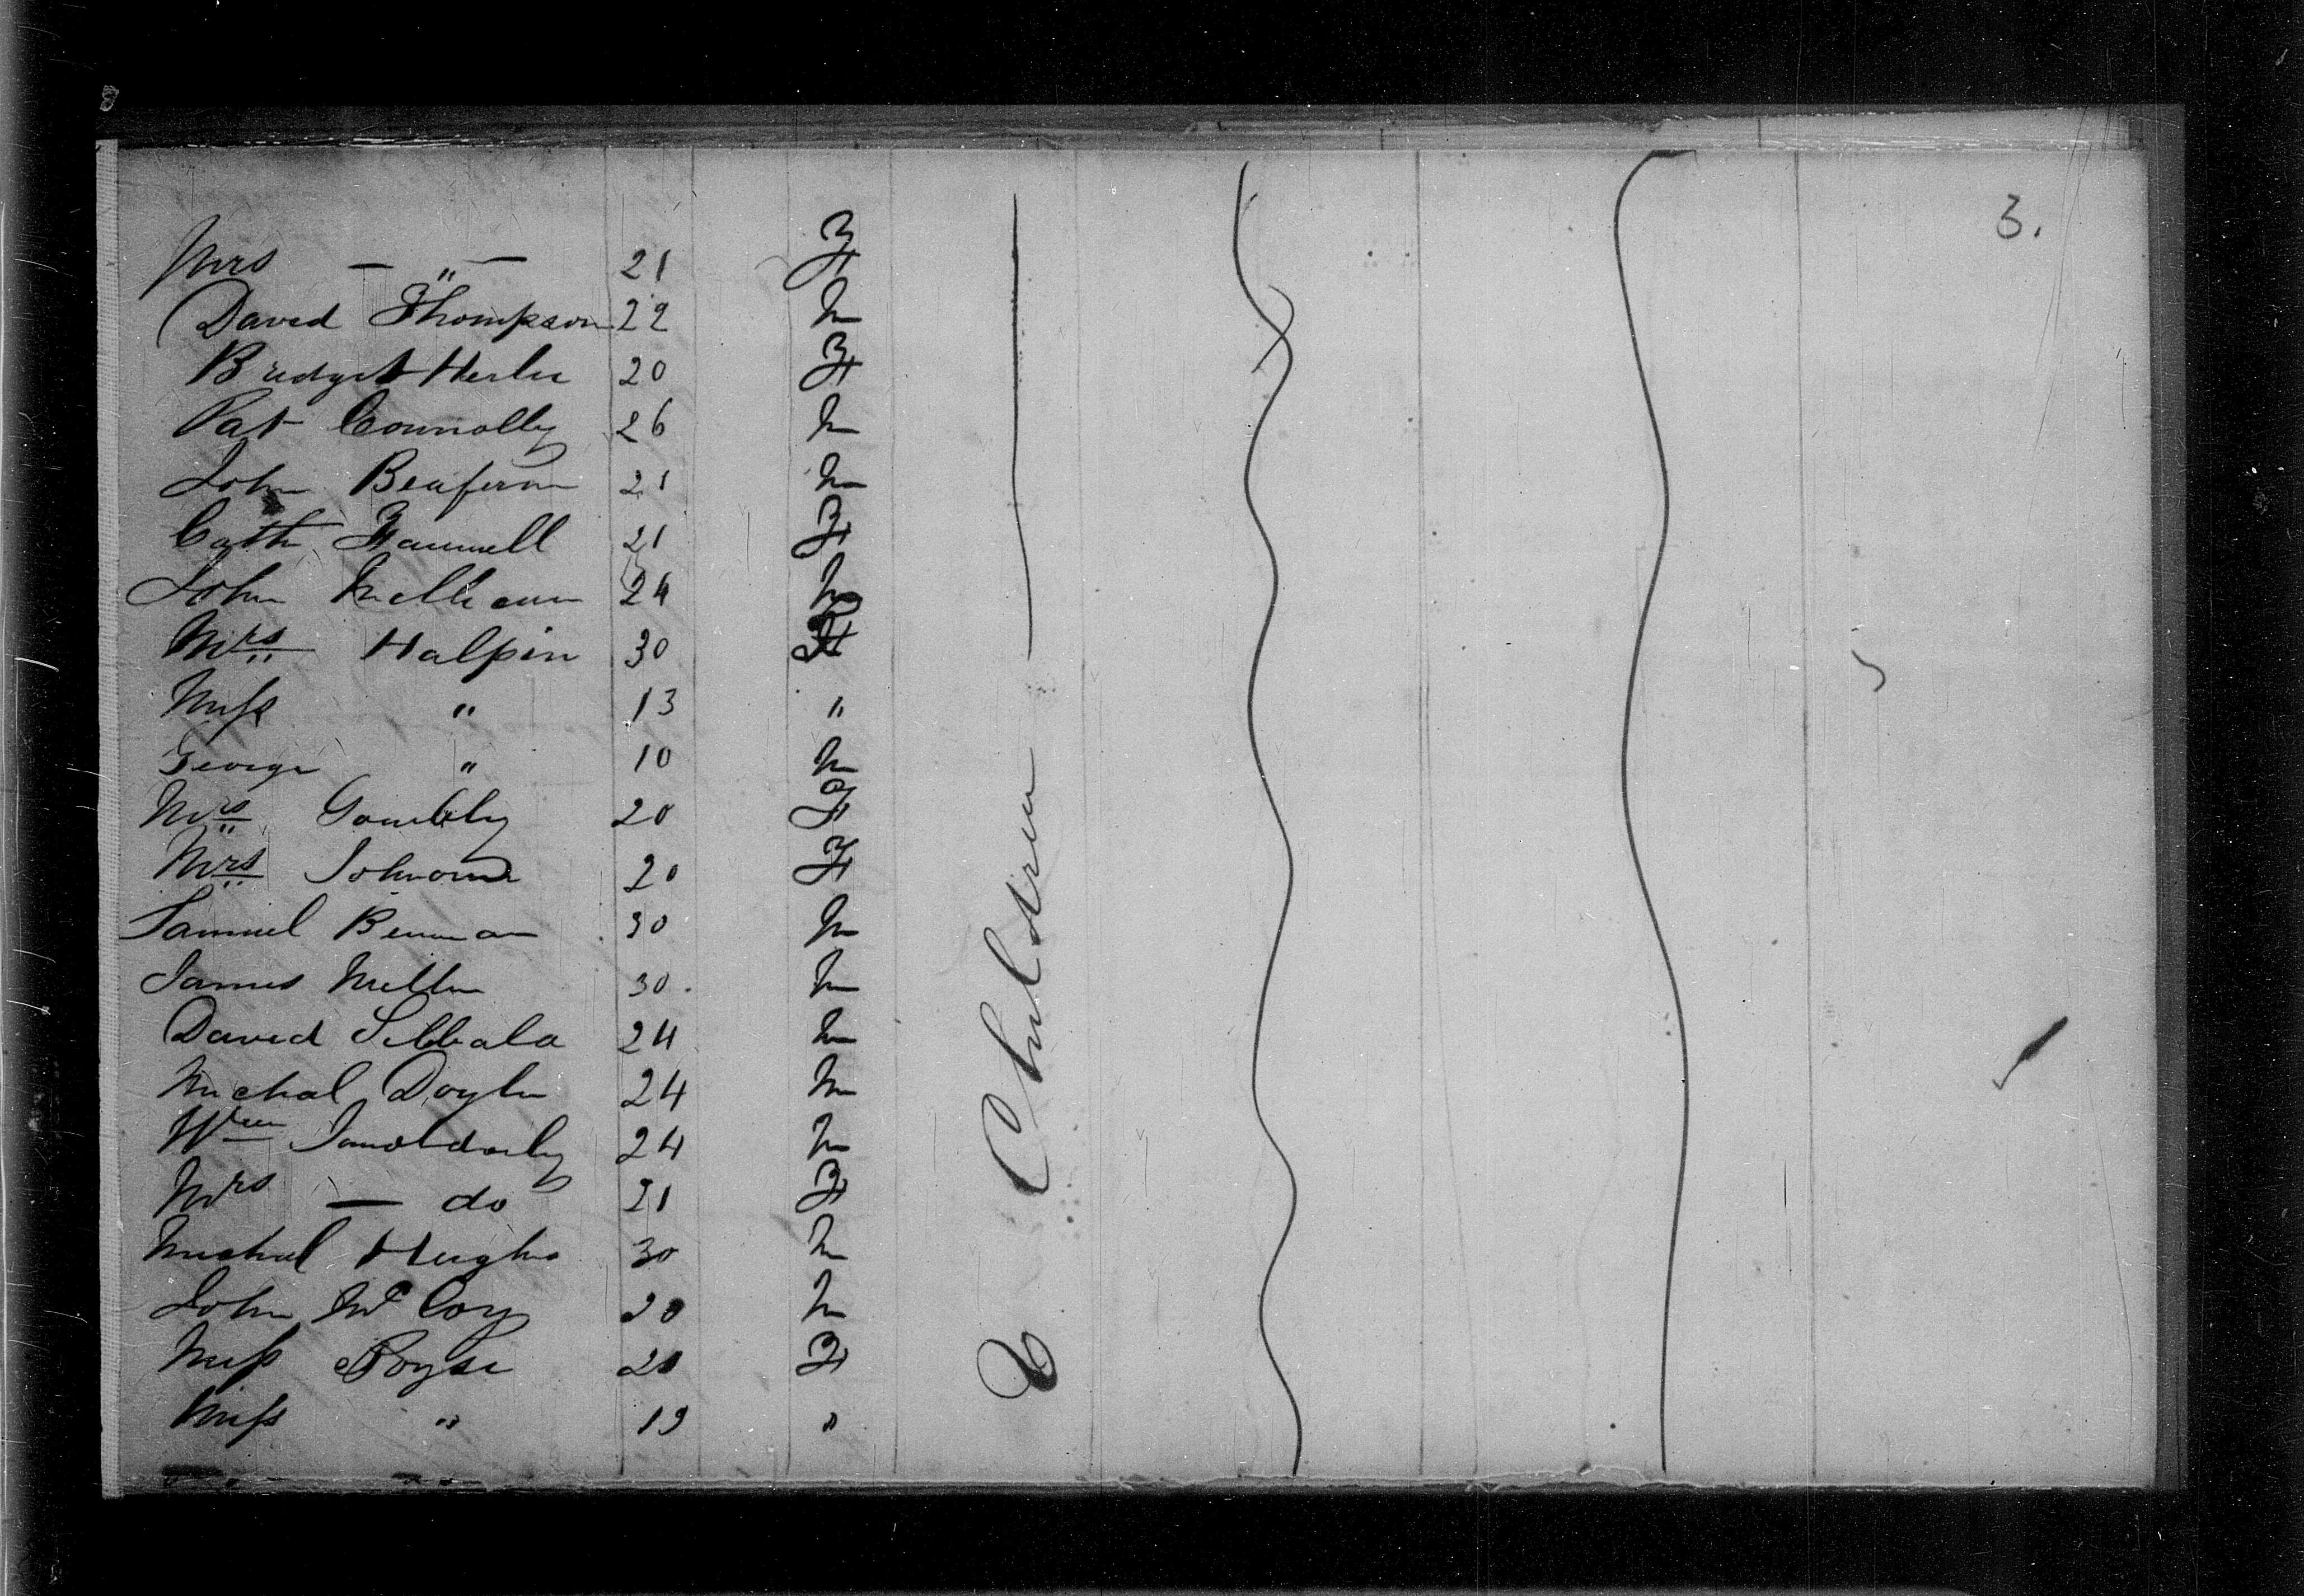 3.
Mrs — " — 21 F
David Thompson 22 M
Bridget Herlie 20 F
Pat Connolly 26 M
John 21 M
Cath Farrell 21 F
John 24 M
Mrs Halpin 30 F
Miss " 13 "
George " 10 M
Mrs 20 F
Mrs 20 F
Samuel 30 M
James Miller 30 M
David Sibbala 24 M
Michal Doyle 24 M
Wm 24 M
Mrs — do 21 F
Michael Hughes 30 M
John McCoy 20 M
Miss Boyse 20 F
Miss " 19 "
Children